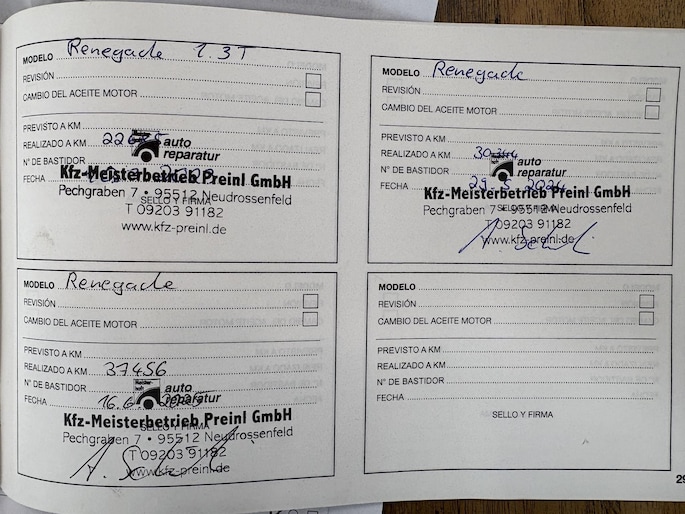 MODELO Renegade 1.3T
REVISIÓN
CAMBIO DEL ACEITE MOTOR
PREVISTO A KM
REALIZADO A KM
auto
reparatur
N° DE BASTIDOR
FECHA
Kfz-Meisterbetrieb Preinl GmbH
Pechgraben 7 • 95512 Neudrossenfeld
SELLO Y FIRMA
T 09203 91182
www.kfz-preinl.de
MODELO Renegade
REVISIÓN
CAMBIO DEL ACEITE MOTOR
PREVISTO A KM
REALIZADO A KM
auto
reparatur
N° DE BASTIDOR
FECHA 29.5.2024
Kfz-Meisterbetrieb Preinl GmbH
Pechgraben 7 • 95512 Neudrossenfeld
SELLO Y FIRMA
T 09203 91182
www.kfz-preinl.de
MODELO Renegade
REVISIÓN
CAMBIO DEL ACEITE MOTOR
PREVISTO A KM
REALIZADO A KM 37456
auto
reparatur
N° DE BASTIDOR
FECHA 16.6
Kfz-Meisterbetrieb Preinl GmbH
SELLO Y FIRMA
Pechgraben 7 • 95512 Neudrossenfeld
T 09203 91182
www.kfz-preinl.de
MODELO
REVISIÓN
CAMBIO DEL ACEITE MOTOR
PREVISTO A KM
REALIZADO A KM
N° DE BASTIDOR
FECHA
SELLO Y FIRMA
29